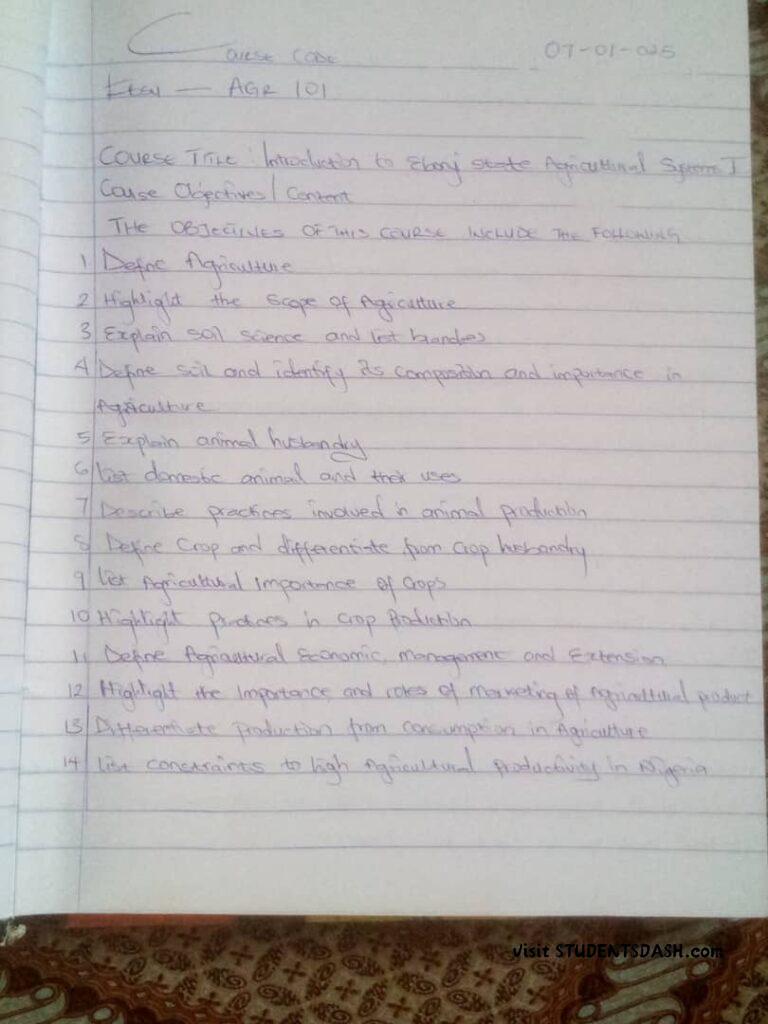 Course Code 07-01-025
AGR 101
Course Title: Introduction to Ebonyi State Agricultural System I
Course Objectives/Content
THE OBJECTIVES OF THIS COURSE INCLUDE THE FOLLOWING
1 Define Agriculture
2 Highlight the Scope of Agriculture
3 Explain soil science and list branches
4 Define soil and identify its composition and importance in
Agriculture
5 Explain animal husbandry
6 List domestic animal and their uses
7 Describe practices involved in animal production
8 Define Crop and differentiate from Crop husbandry
9 List Agricultural Importance of Crops
10 Highlight practices in Crop Production
11 Define Agricultural Economic, management and Extension
12 Highlight the Importance and roles of marketing of Agricultural product
13 Differentiate production from consumption in Agriculture
14 List constraints to high Agricultural productivity in Nigeria
Visit STUDENTSDASH.com